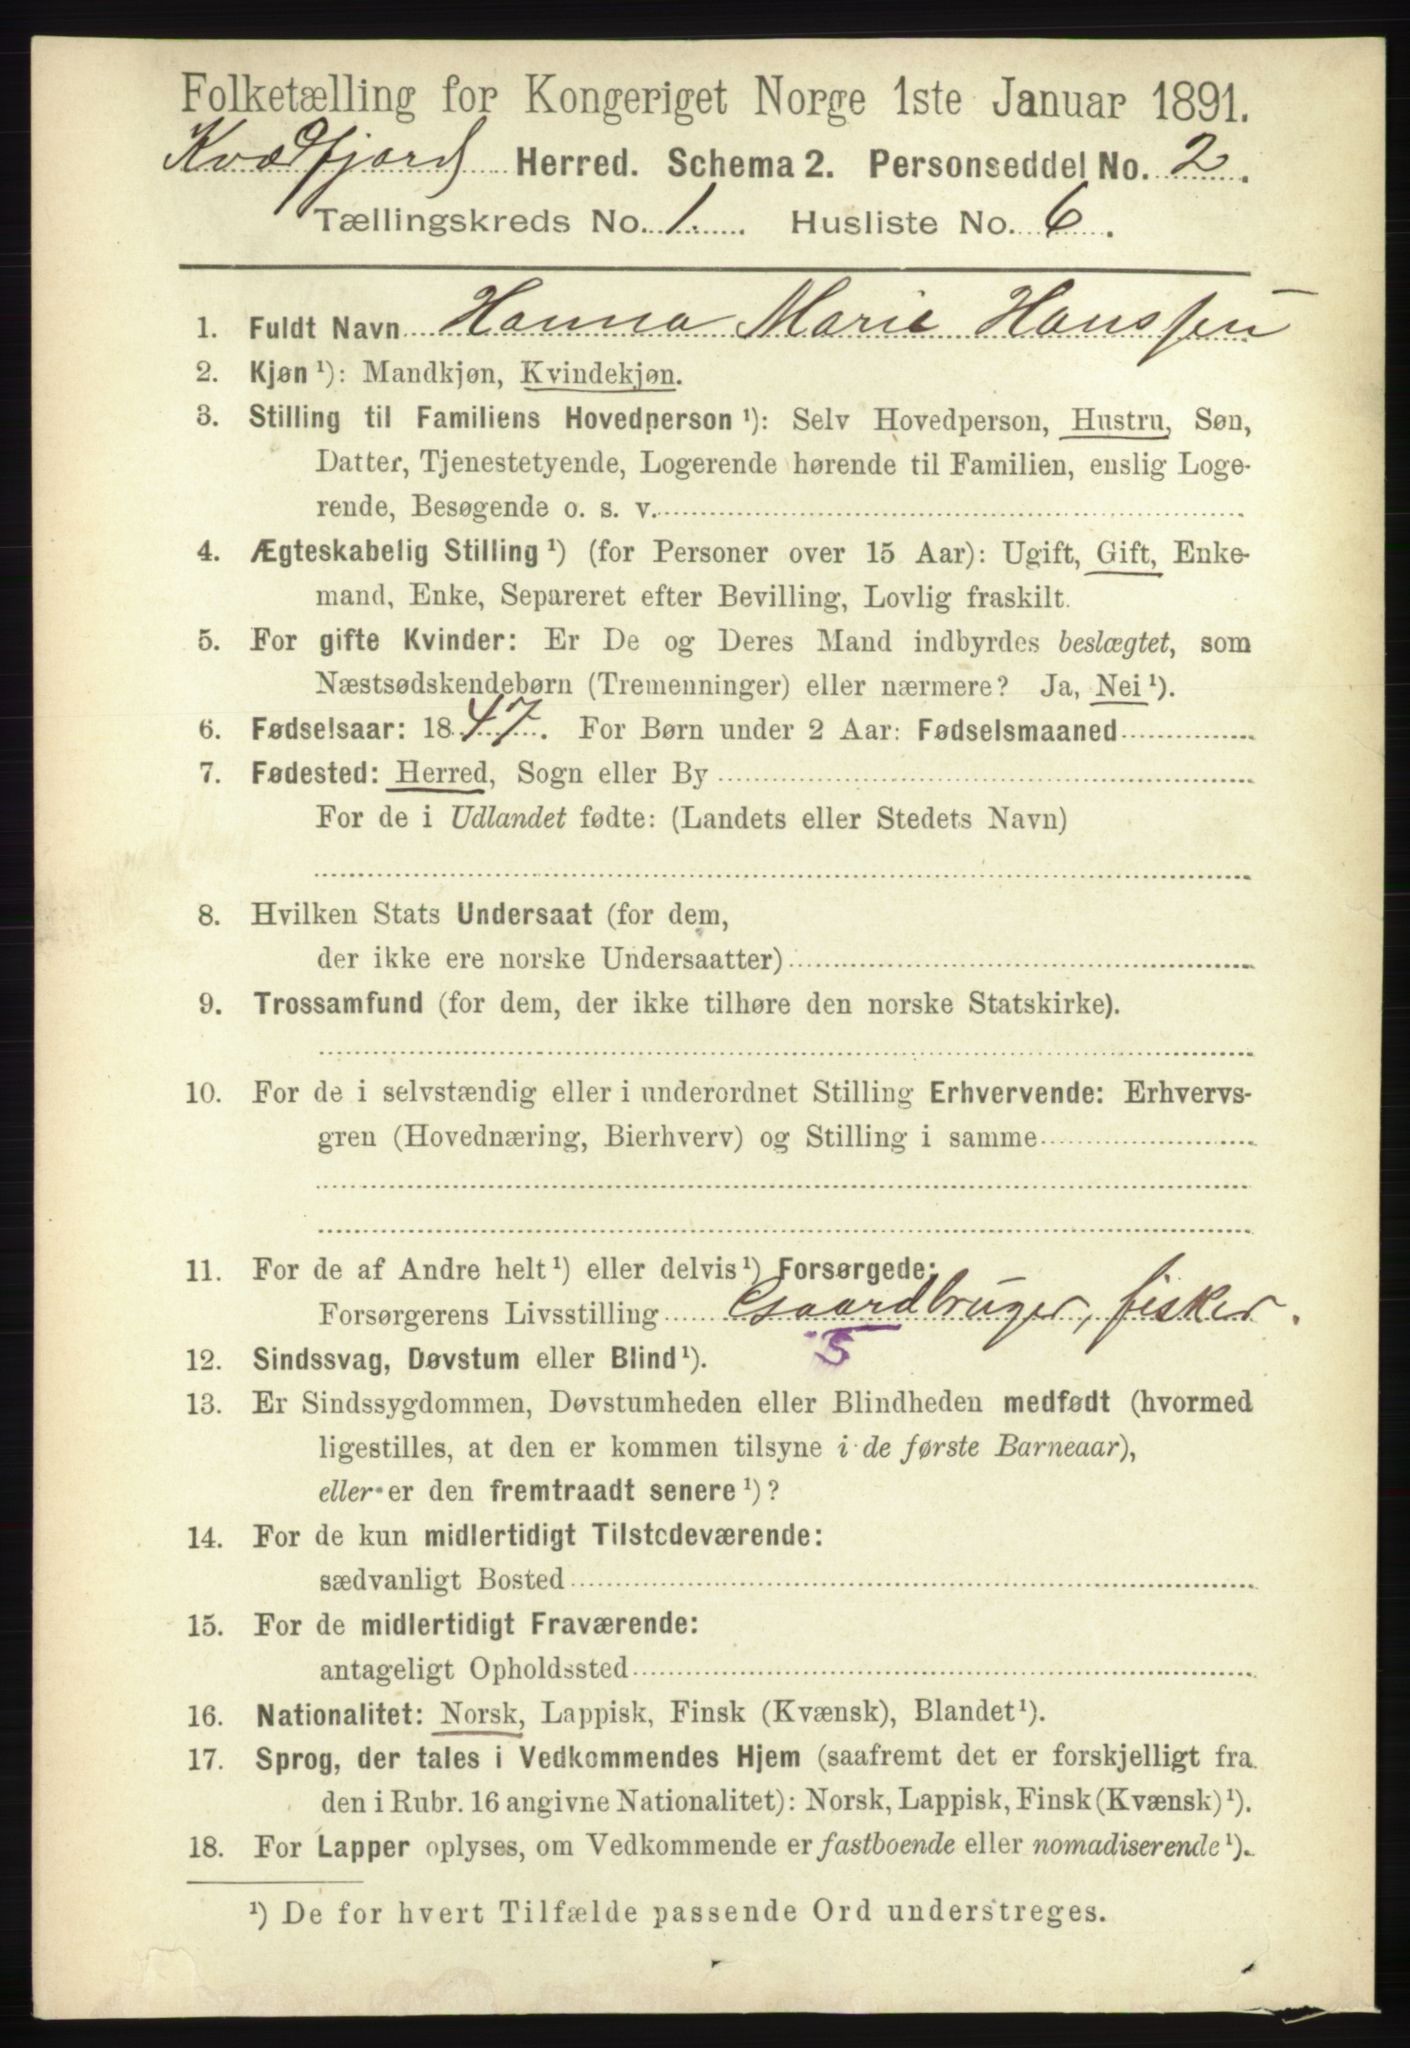 Folketælling for Kongeriget Norge 1ste Januar 1891.
Kvædfjord Herred. Schema 2. Personseddel No. 2.
Tællingskreds No. 1. Husliste No. 6.
1. Fuldt Navn Hanna Marie Hanssen
2. Kjøn ¹): Mandkjøn, Kvindekjøn.
3. Stilling til Familiens Hovedperson ¹): Selv Hovedperson, Hustru, Søn,
Datter, Tjenestetyende, Logerende hørende til Familien, enslig Loge-
rende, Besøgende o. s. v.
4. Ægteskabelig Stilling ¹) (for Personer over 15 Aar): Ugift, Gift, Enke-
mand, Enke, Separeret efter Bevilling, Lovlig fraskilt.
5. For gifte Kvinder: Er De og Deres Mand indbyrdes beslægtet, som
Næstsødskendebørn (Tremenninger) eller nærmere? Ja, Nei ¹).
6. Fødselsaar: 1847. For Børn under 2 Aar: Fødselsmaaned
7. Fødested: Herred, Sogn eller By
For de i Udlandet fødte: (Landets eller Stedets Navn)
8. Hvilken Stats Undersaat (for dem,
der ikke ere norske Undersaatter)
9. Trossamfund (for dem, der ikke tilhøre den norske Statskirke).
10. For de i selvstændig eller i underordnet Stilling Erhvervende: Erhvervs-
gren (Hovednæring, Bierhverv) og Stilling i samme
11. For de af Andre helt ¹) eller delvis ¹) Forsørgede:
Forsørgerens Livsstilling Gaardbruger, fisker.
5
12. Sindssvag, Døvstum eller Blind ¹).
13. Er Sindssygdommen, Døvstumheden eller Blindheden medfødt (hvormed
ligestilles, at den er kommen tilsyne i de første Barneaar),
eller er den fremtraadt senere ¹)?
14. For de kun midlertidigt Tilstedeværende:
sædvanligt Bosted
15. For de midlertidigt Fraværende:
antageligt Opholdssted
16. Nationalitet: Norsk, Lappisk, Finsk (Kvænsk), Blandet ¹).
17. Sprog, der tales i Vedkommendes Hjem (saafremt det er forskjelligt fra
den i Rubr. 16 angivne Nationalitet): Norsk, Lappisk, Finsk (Kvænsk) ¹).
18. For Lapper oplyses, om Vedkommende er fastboende eller nomadiserende ¹).
¹) De for hvert Tilfælde passende Ord understreges.